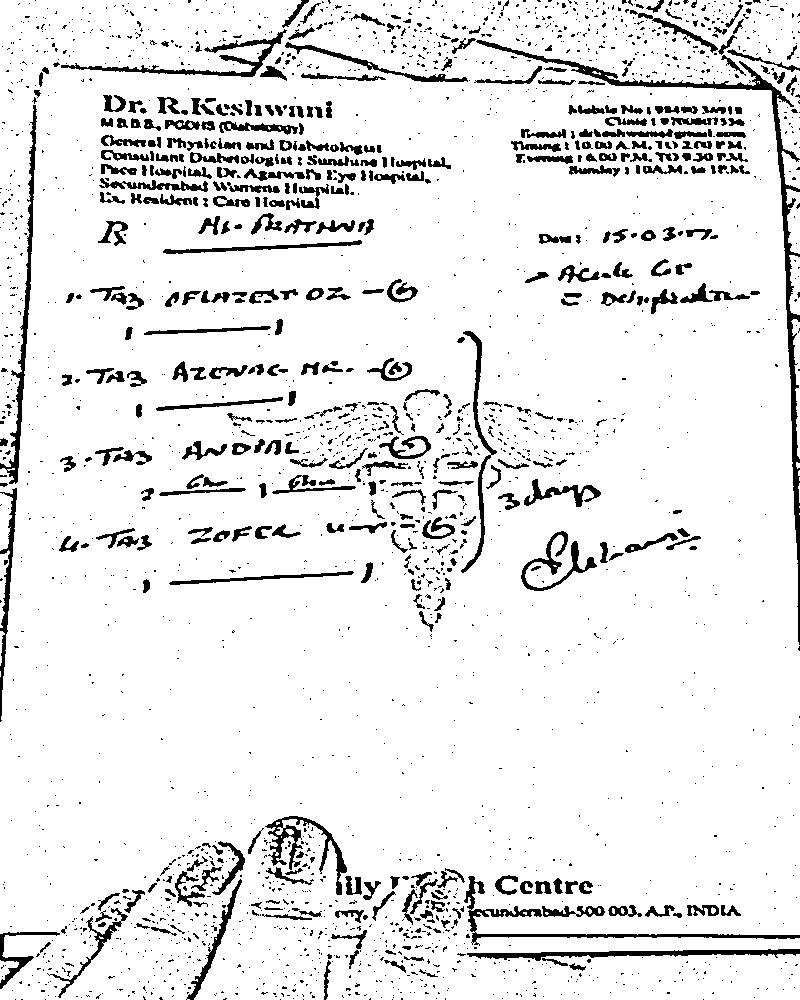 Dr. R.Keshwani
M.B.B.S., PGDHS (Diabetology)
General Physician and Diabetologist
Consultant Diabetologist : Sunshine Hospital,
Pace Hospital, Dr. Agarwal's Eye Hospital,
Secunderabad Womens Hospital.
Ex. Resident : Care Hospital
Mobile No :
Clinic :
E-mail :
Timing : 10.00 A.M. TO 2.00 P.M.
Evening : 6.00 P.M. TO 9.30 P.M.
Sunday : 10A.M. to 1P.M.
Rx
Date : 15.03.17.
→ Acute
Dehydration
1. TAB OFLAZEST OZ - 6
1 — 1
2. TAB AZENAC MR. - 6
1 — 1
3. TAB ANDIAL 6
2 — 1 — 1
4. TAB ZOFER 6
1 — 1
3 days
h Centre
ecunderabad-500 003. A.P., INDIA